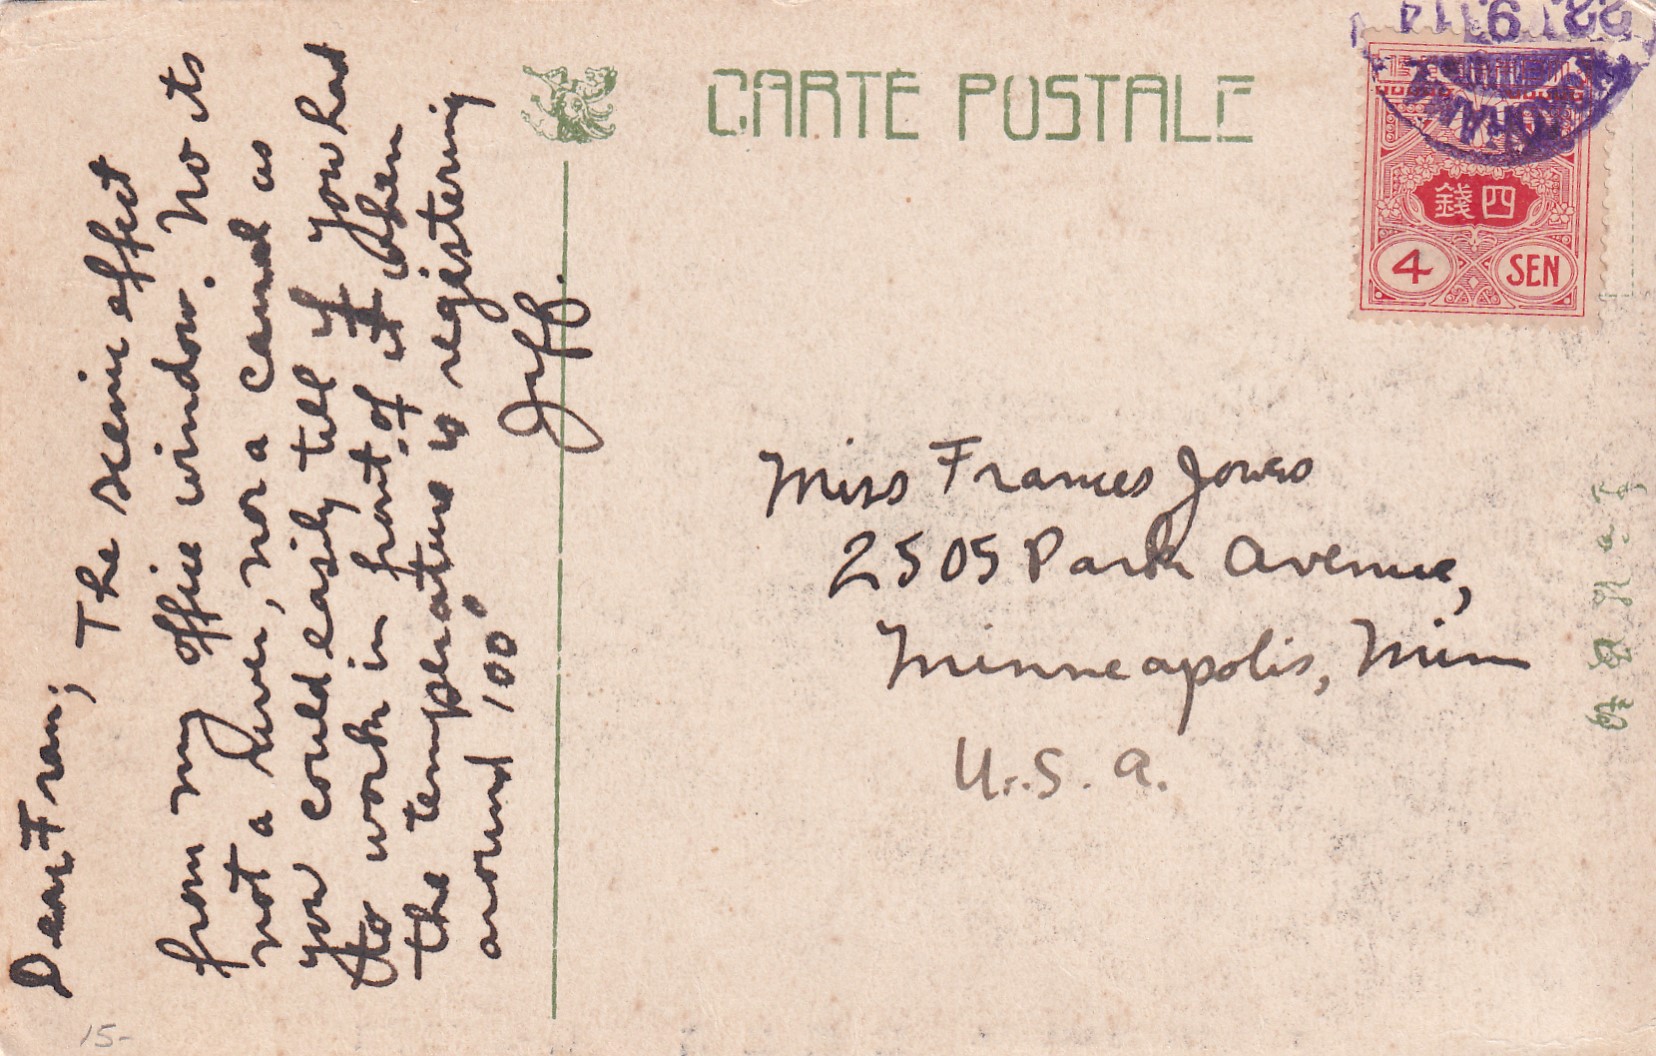 CARTE POSTALE
22. 9. 14
四錢
4 SEN
Dear Fran; The scenic effect
from my office window. No its
not a river, nor a canal as
you could easily tell if you had
to work in front of it when
the temperature is registering
around 100°
Jeff.
Miss Frances Jones
2505 Park Avenue,
Minneapolis, Minn
U.S.A.
15-